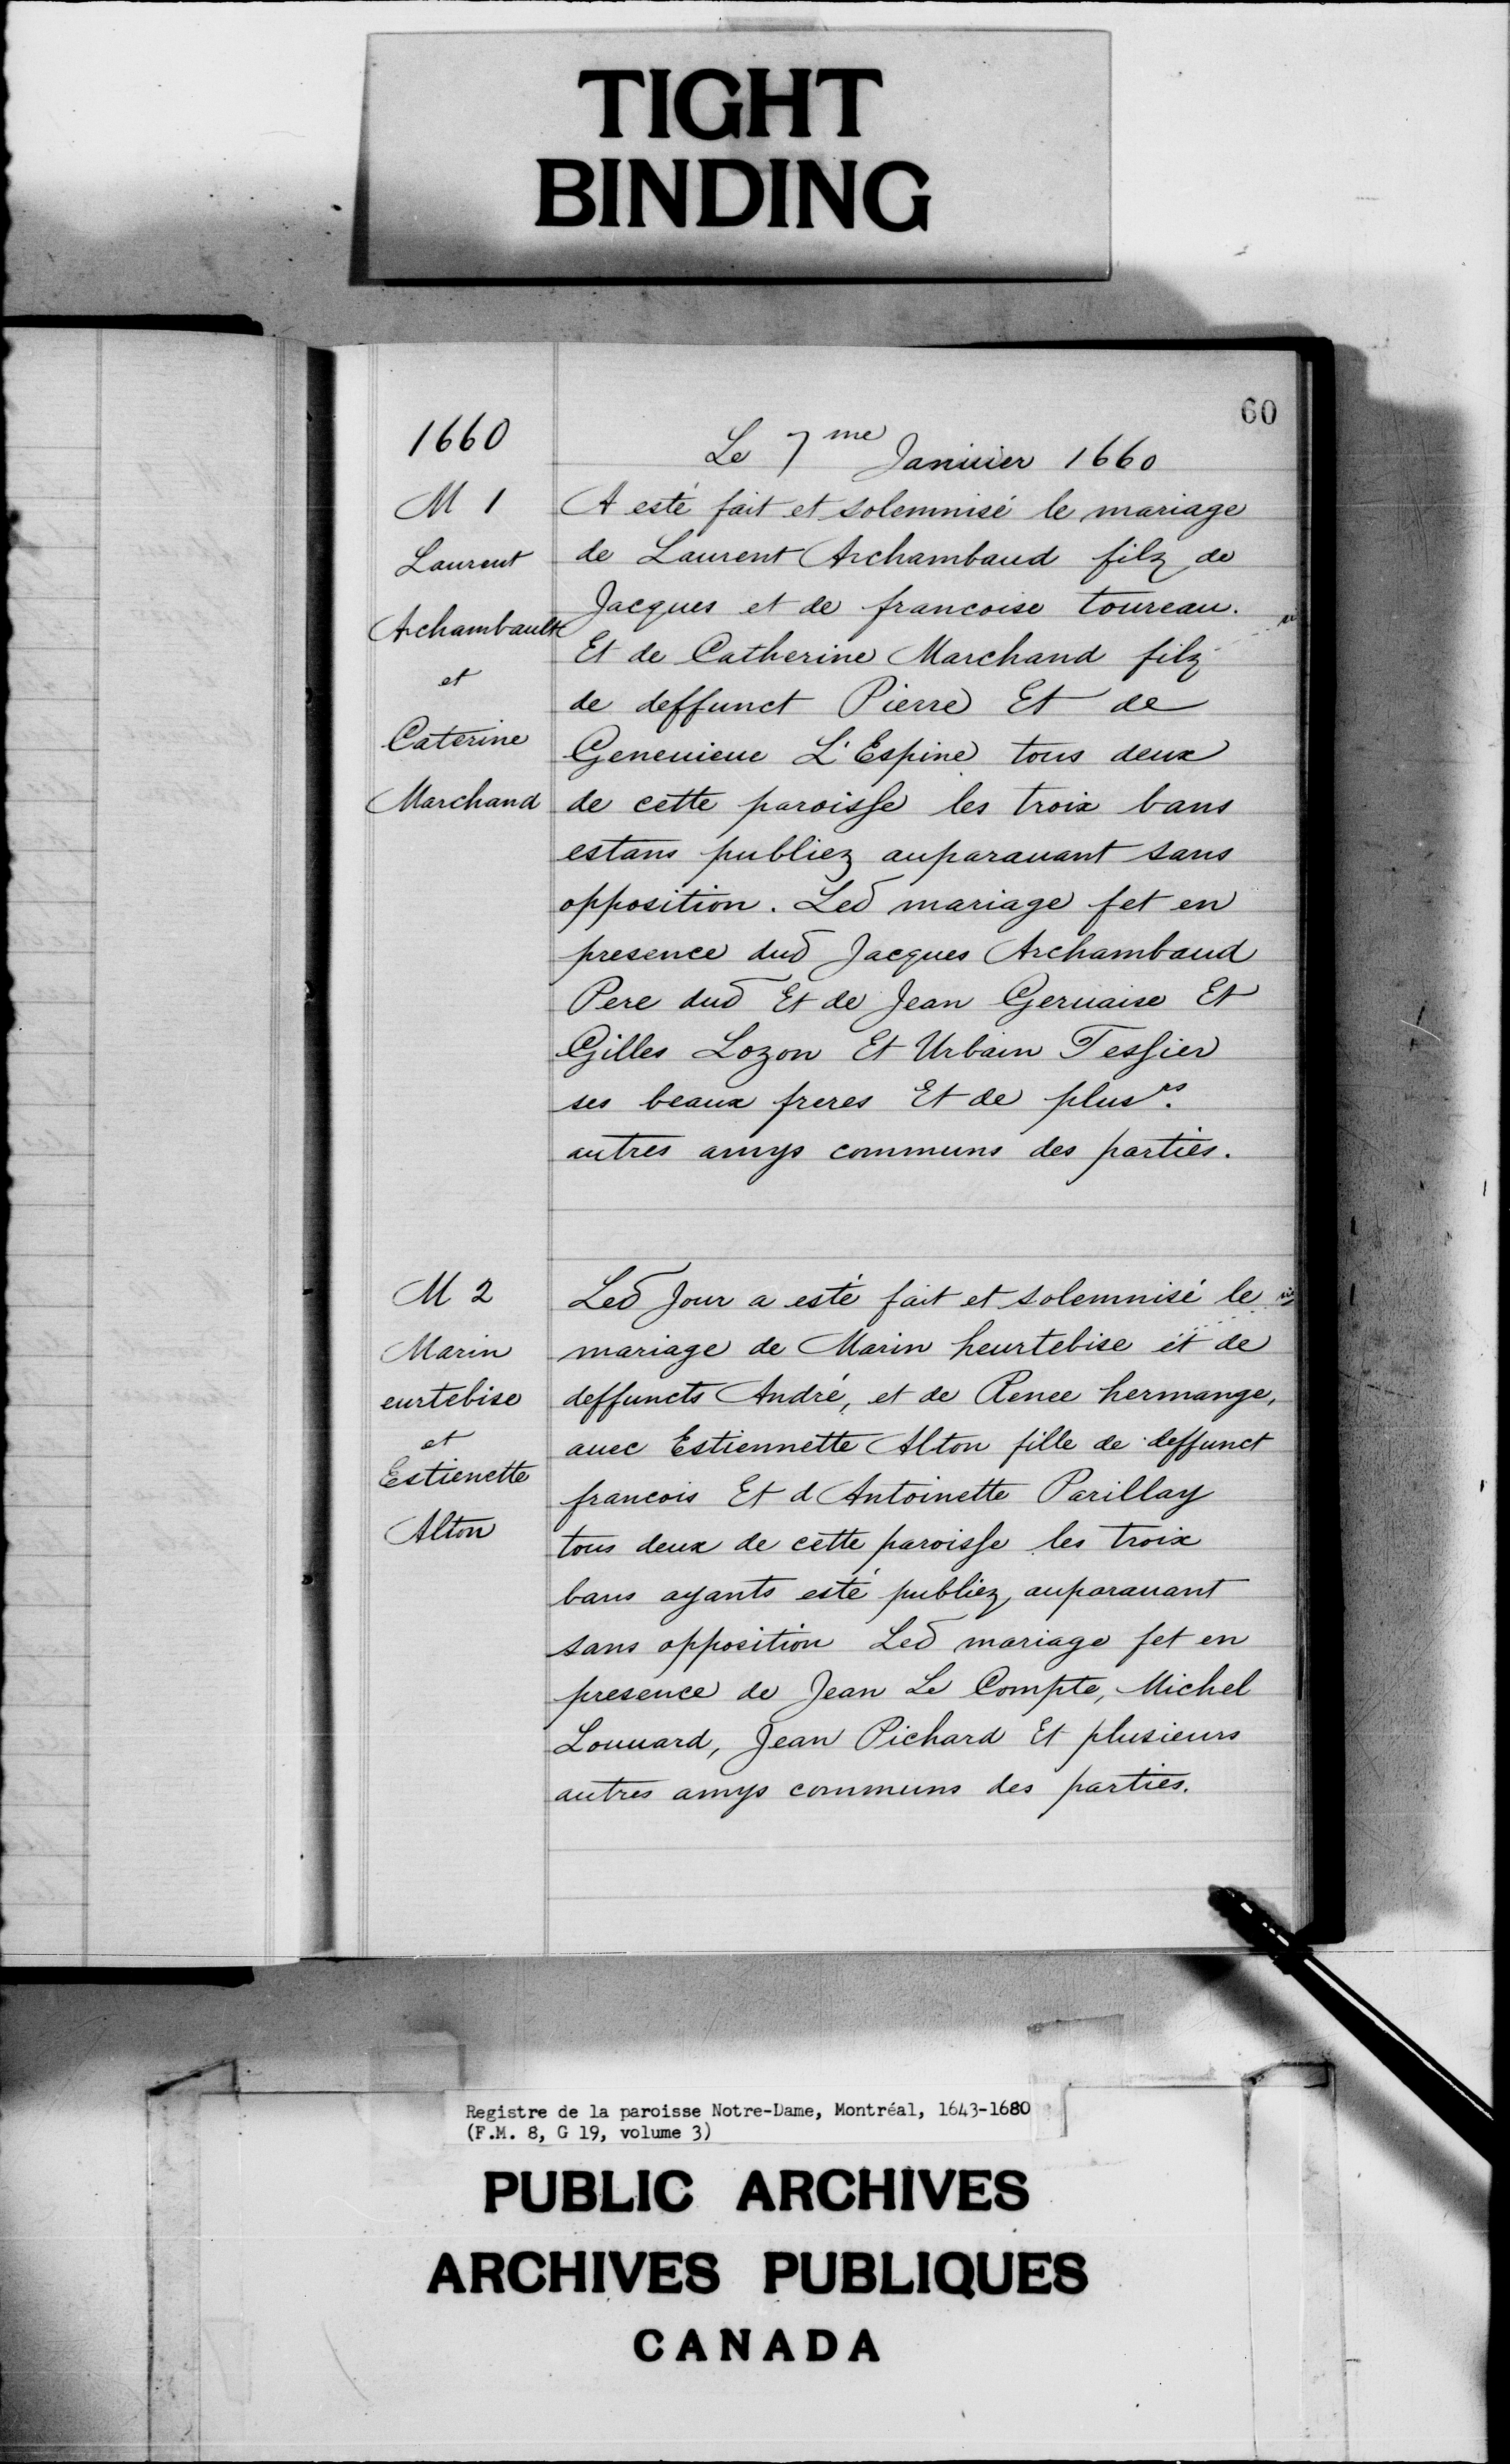 TIGHT
BINDING
60
1660
Le 7me Januier 1660
M 1
Laurent
Archambault
et
Caterine
Marchand
A esté fait et solemnisé le mariage
de Laurent Archambaud filz de
Jacques et de francoise toureau.
Et de Catherine Marchand filz
de deffunct Pierre Et de
Geneuieue L'Espine tous deux
de cette paroisse les troix bans
estans publiez auparauant sans
opposition. Led mariage fet en
presence dud Jacques Archambaud
Pere dud Et de Jean Geruaise Et
Gilles Lozon Et Urbain Tessier
ses beaux freres Et de plusrs.
autres amys communs des parties.
M 2
Marin
eurtebise
et
Estienette
Alton
Led Jour a esté fait et solemnisé le
mariage de Marin heurtebise et de
deffuncts André, et de Renee hermange,
auec Estiennette Alton fille de deffunct
francois Et d Antoinette Parillay
tous deux de cette paroisse les troix
bans ayants esté publiez auparauant
sans opposition Led mariage fet en
presence de Jean Le Compte, Michel
Louuard, Jean Pichard Et plusieurs
autres amys communs des parties.
Registre de la paroisse Notre-Dame, Montréal, 1643-1680
(F.M. 8, G 19, volume 3)
PUBLIC ARCHIVES
ARCHIVES PUBLIQUES
CANADA